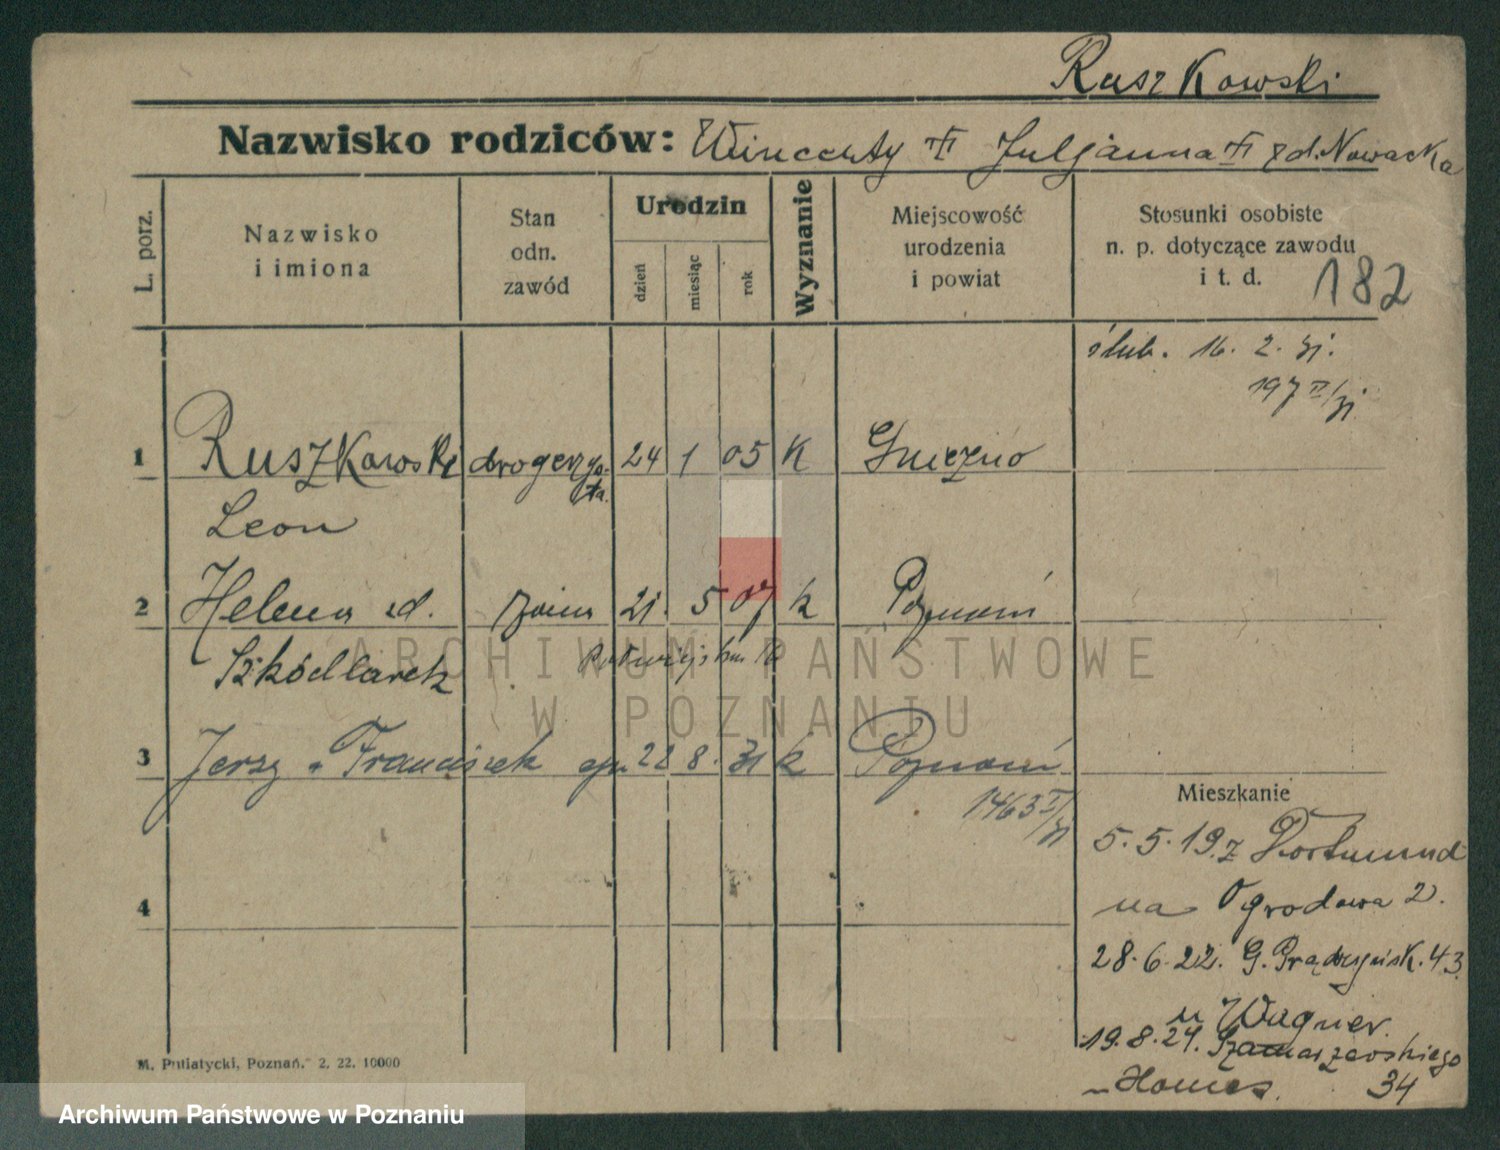 Ruszkowski
Nazwisko rodziców: Wincenty Juljanna zd. Nowacka
L. porz.
Nazwisko
i imiona
Stan
odn.
zawód
Urodzin
dzień
miesiąc
rok
Wyznanie
Miejscowość
urodzenia
i powiat
Stosunki osobiste
n. p. dotyczące zawodu
i t. d.
182
ślub. 16. 2. 31.
197 II/31
1 Ruszkowski drogerzysta 24 1 05 K Gniezno
Leon
2 Helena zd. żona 21. 5 07 k Poznań
Szkódlarek
3 Jerzy Franciszek 8. 31 k Poznań
1463 I/31
4
Mieszkanie
5. 5. 19. z Dortmund
na Ogrodowa 2.
28. 6. 22. G. Prądzyńsk. 43.
u Wagner.
19. 8. 24. Szamarzewskiego
34
M. Putiatycki, Poznań. 2. 22. 10000
ARCHIWUM PAŃSTWOWE
W POZNANIU
Archiwum Państwowe w Poznaniu